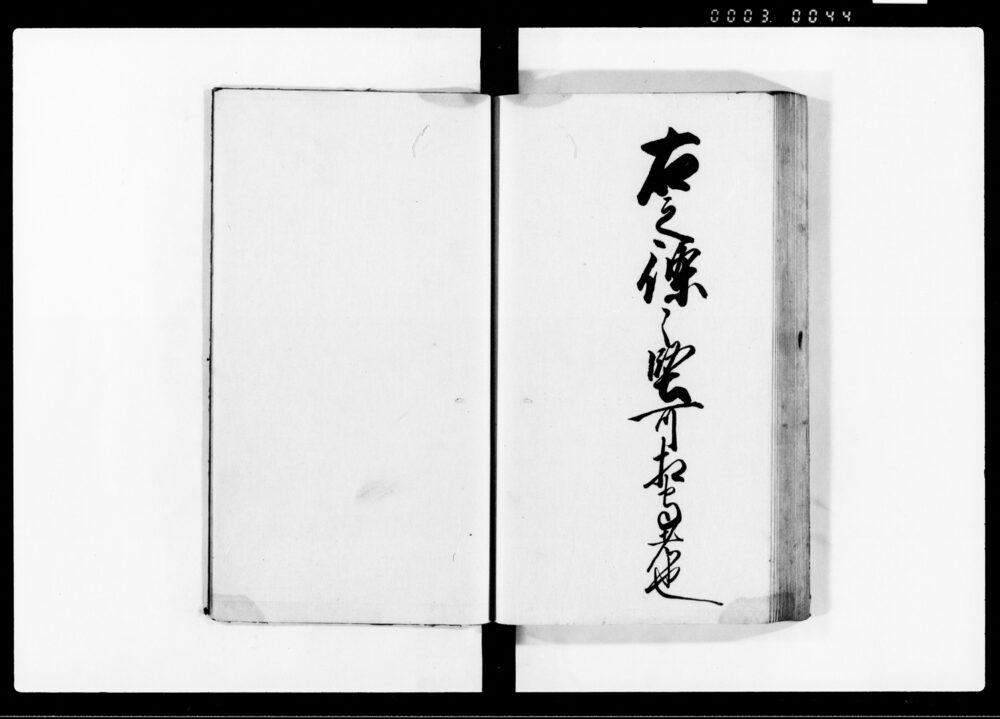 0003. 0044
右之條々堅可相守者也